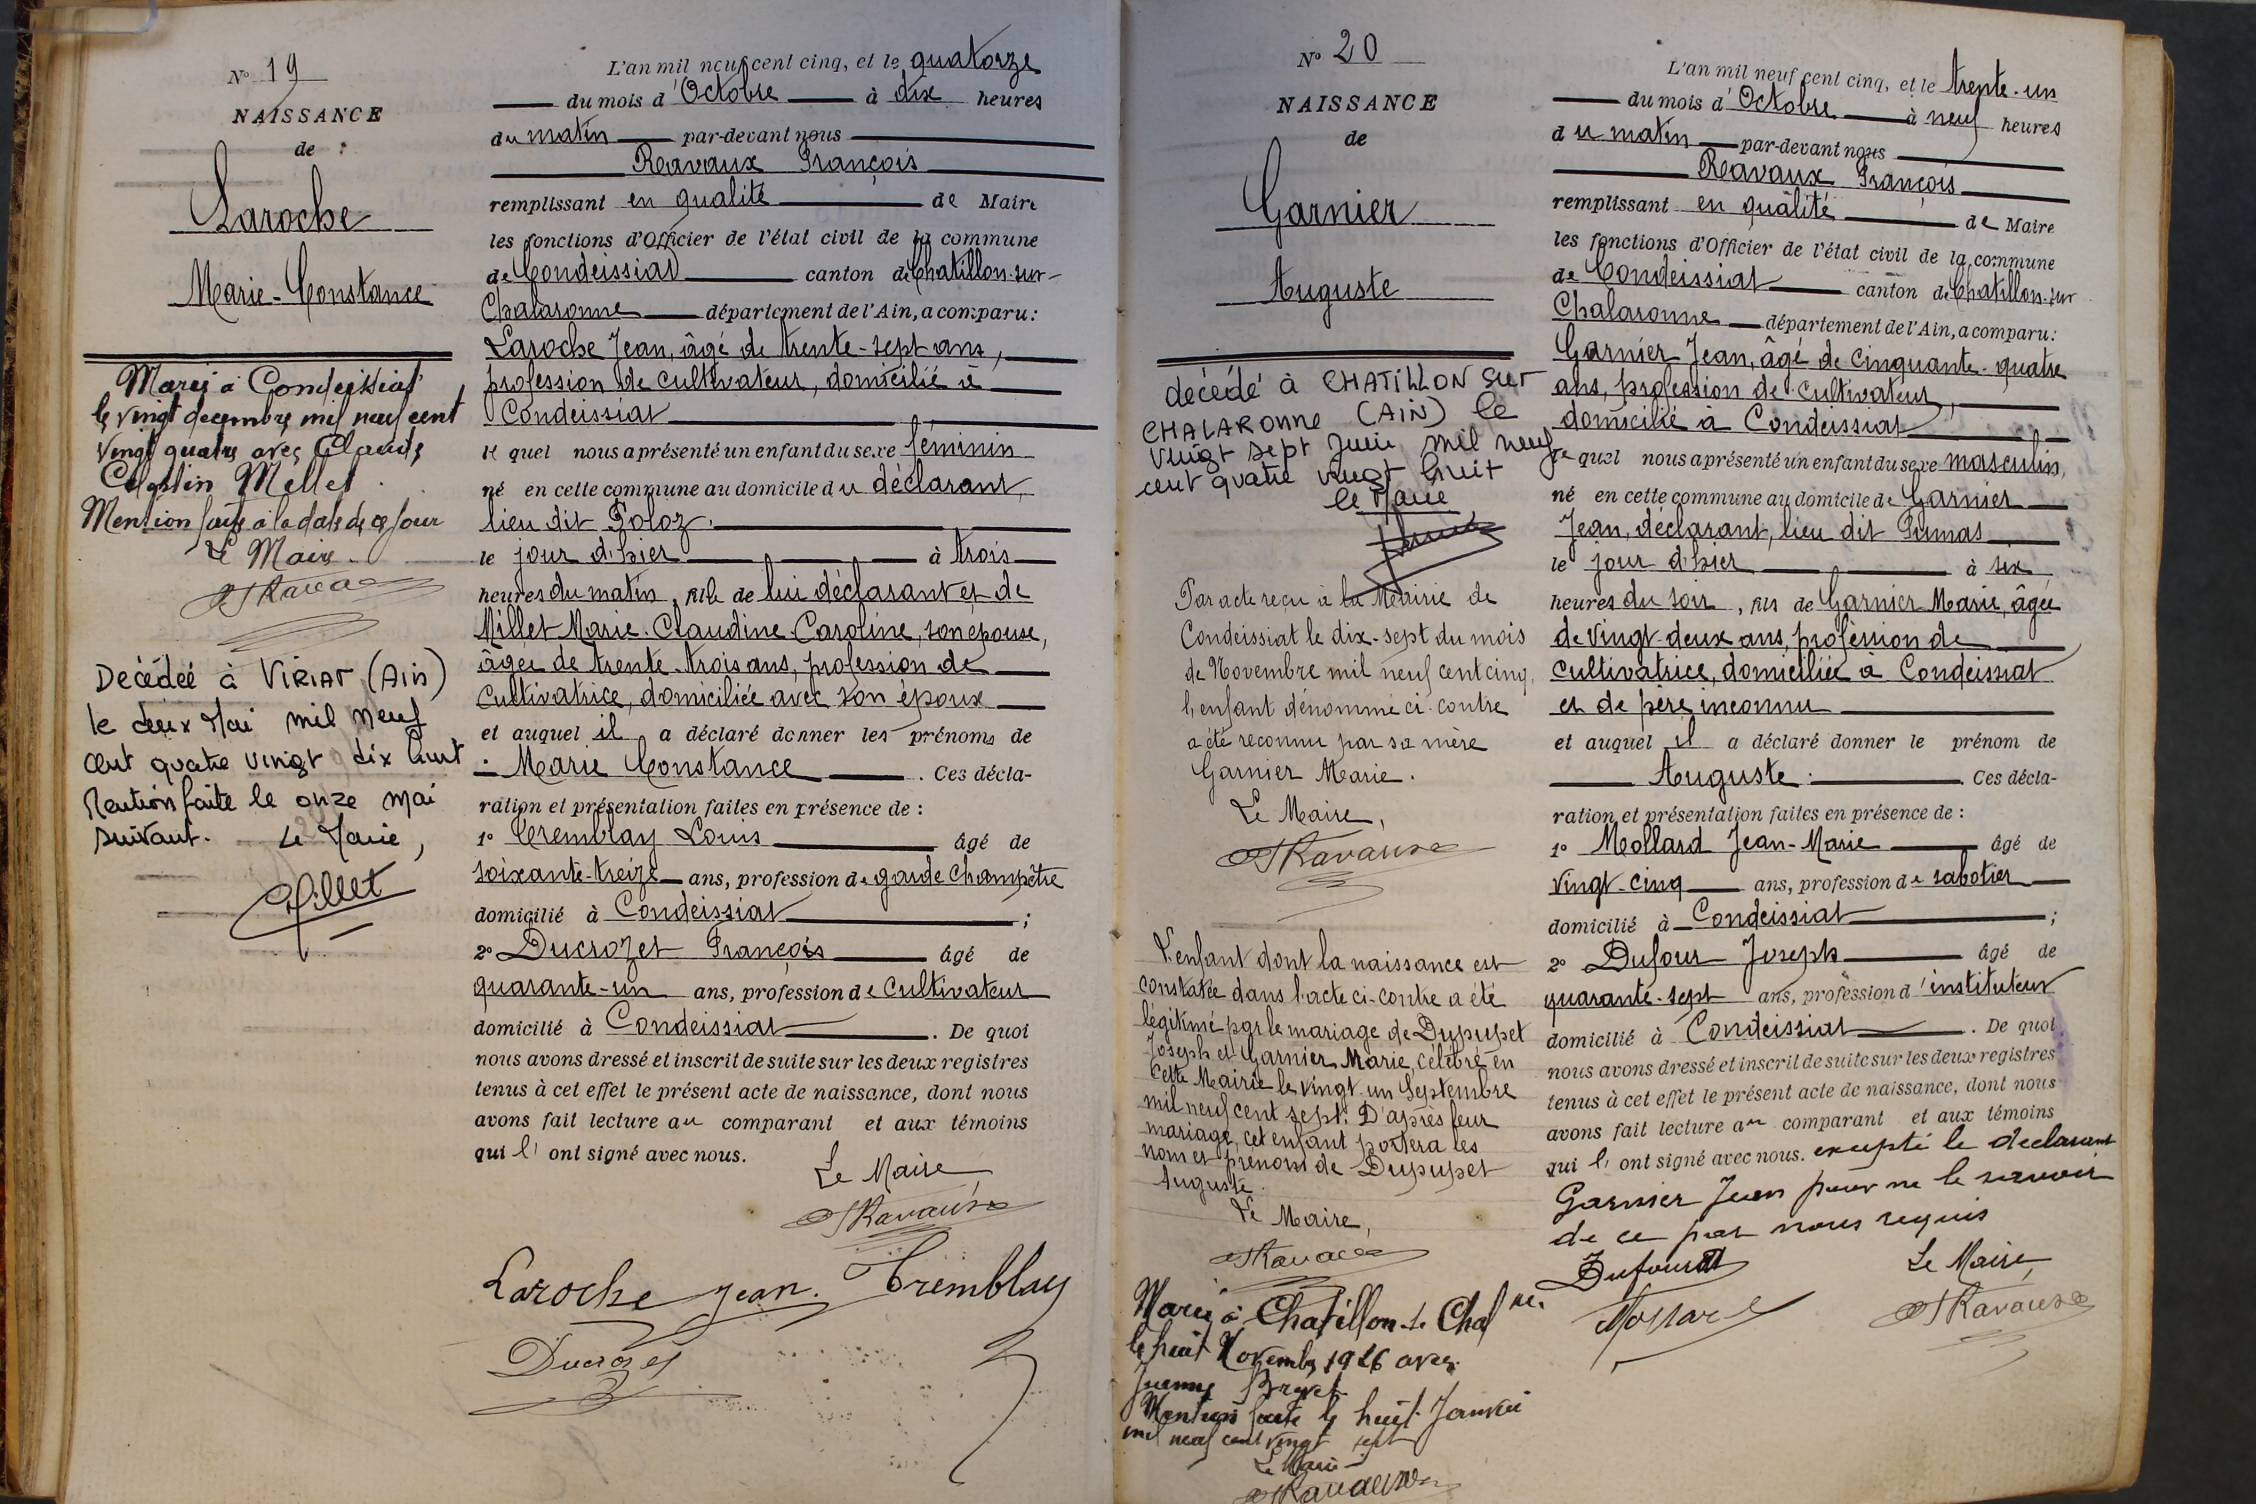 N° 19
NAISSANCE
de :
Laroche
Marie-Constance
Mariée à Condeissiat
le vingt decembre mil neuf cent
vingt quatre avec Claude
Célestin Mellet
Mention faite à la date de ce jour
Le Maire
Décédée à VIRIAT (Ain)
le deux Mai mil neuf
cent quatre vingt dix huit
Mention faite le onze mai
suivant. Le Maire,
L'an mil neuf cent cinq, et le quatorze
du mois d'Octobre à dix heures
du matin par-devant nous
Ravaux François
remplissant en qualité de Maire
les fonctions d'Officier de l'état civil de la commune
de Condeissiat canton de Chatillon-sur-
Chalaronne département de l'Ain, a comparu :
Laroche Jean, âgé de trente-sept ans,
profession de cultivateur, domicilié à
Condeissiat
le quel nous a présenté un enfant du sexe féminin
né en cette commune au domicile du déclarant,
lieu dit Poloz,
le jour d'hier à trois
heures du matin, fille de lui déclarant et de
Millet Marie-Claudine-Caroline, son épouse,
âgée de trente-trois ans, profession de
cultivatrice, domiciliée avec son époux
et auquel il a déclaré donner les prénoms de
Marie Constance . Ces décla-
ration et présentation faites en présence de :
1° Tremblay Louis âgé de
soixante-treize ans, profession de garde champêtre
domicilié à Condeissiat ;
2° Ducrozet François âgé de
quarante-un ans, profession de cultivateur
domicilié à Condeissiat . De quoi
nous avons dressé et inscrit de suite sur les deux registres
tenus à cet effet le présent acte de naissance, dont nous
avons fait lecture au comparant et aux témoins
qui l' ont signé avec nous.
Le Maire,
Ravaux
Laroche Jean. Tremblay
Ducrozet
N° 20
NAISSANCE
de
Garnier
Auguste
décédé à CHATILLON sur
CHALARONNE (AIN) le
vingt sept juin mil neuf
cent quatre vingt huit
le Maire
Par acte reçu à la Mairie de
Condeissiat le dix-sept du mois
de Novembre mil neuf cent cinq,
l'enfant dénommé ci-contre
a été reconnu par sa mère
Garnier Marie.
Le Maire,
Ravaux
L'enfant dont la naissance est
constatée dans l'acte ci-contre a été
légitimé par le mariage de Dupupet
Joseph et Garnier Marie, célébré en
cette Mairie le vingt-un Septembre
mil neuf cent sept. D'après leur
mariage, cet enfant portera les
nom et prénom de Dupupet
Auguste.
Le Maire,
Ravaux
Marié à Chatillon-s-Chal ne
le huit Novembre 1926 avec
Mention faite le huit Janvier
mil neuf cent vingt sept
Le Maire
L'an mil neuf cent cinq, et le trente-un
du mois d'Octobre à neuf heures
du matin par-devant nous
Ravaux François
remplissant en qualité de Maire
les fonctions d'Officier de l'état civil de la commune
de Condeissiat canton de Chatillon-sur
Chalaronne département de l'Ain, a comparu :
Garnier Jean, âgé de cinquante-quatre
ans, profession de cultivateur,
domicilié à Condeissiat
le quel nous a présenté un enfant du sexe masculin,
né en cette commune au domicile de Garnier
Jean, déclarant, lieu dit Pumas
le jour d'hier à six
heures du soir, fils de Garnier Marie, âgée
de vingt-deux ans, profession de
cultivatrice, domiciliée à Condeissiat
et de père inconnu
et auquel il a déclaré donner le prénom de
Auguste. Ces décla-
ration et présentation faites en présence de :
1° Mollard Jean-Marie âgé de
vingt-cinq ans, profession de sabotier
domicilié à Condeissiat ;
2° Dufour Joseph âgé de
quarante-sept ans, profession d'instituteur
domicilié à Condeissiat . De quoi
nous avons dressé et inscrit de suite sur les deux registres
tenus à cet effet le présent acte de naissance, dont nous
avons fait lecture au comparant et aux témoins
qui l' ont signé avec nous. excepté le déclarant
Garnier Jean pour ne le savoir
de ce par nous requis
Dufour Le Maire,
Mollard Ravaux